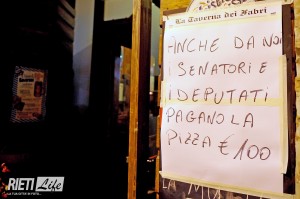 La Taverna dei Fabri
ANCHE DA NOI
I SENATORI E
I DEPUTATI
PAGANO LA
PIZZA € 100
RIETI Life